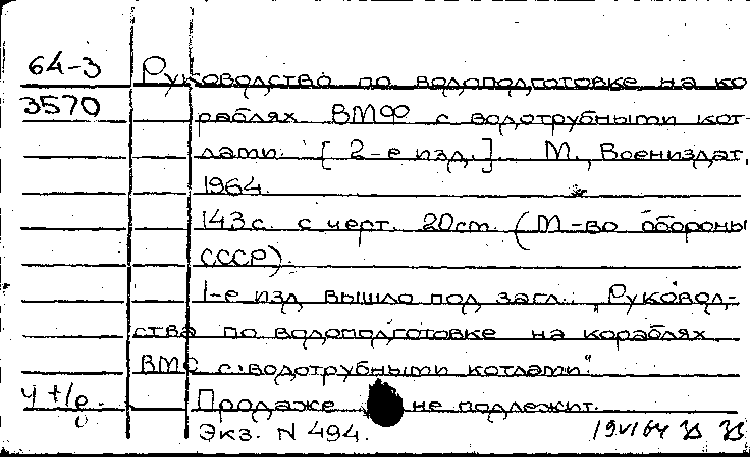 64-3 Руководство по водоподготовке на ко
3570 раблях ВМФ с водотрубными кот-
лами. [2-е изд.]. М., Воениздат,
1964.
143 с. с черт. 20 cm. (М-во обороны
СССР).
1-е изд. вышло под загл.: „Руковод-
ство по водоподготовке на кораблях
ВМС с водотрубными котлами".
Продаже не подлежит.
Экз. N 494. 19 VI 64